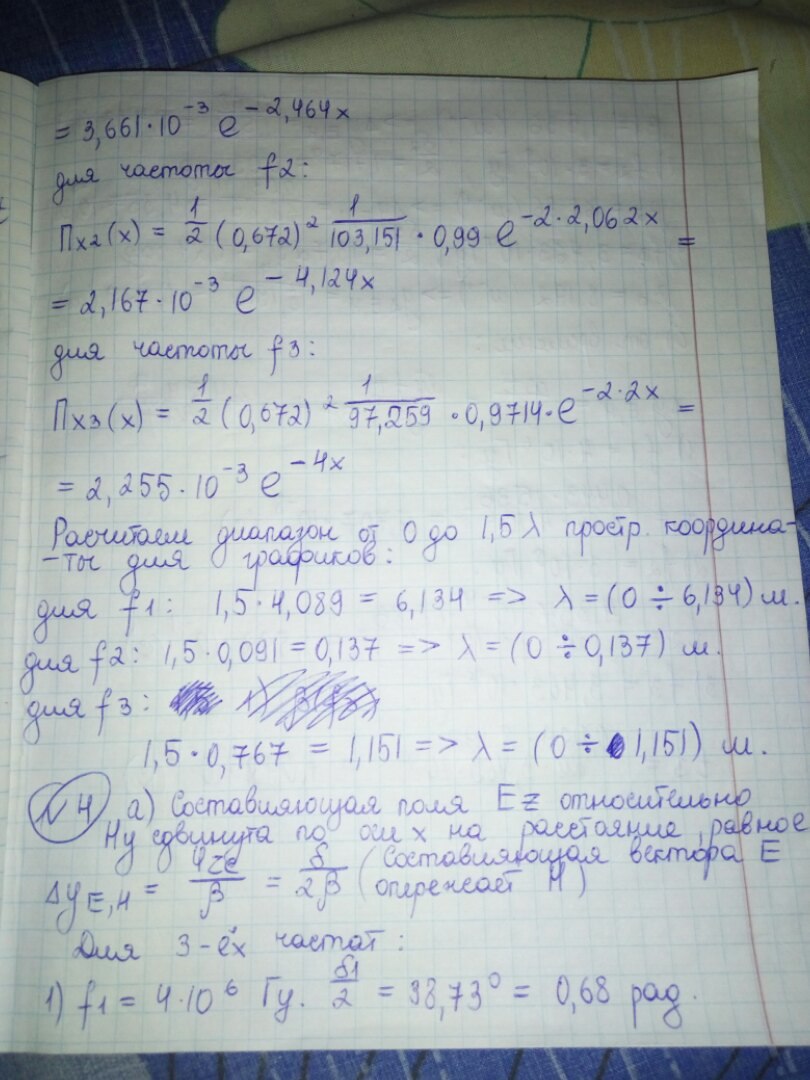 = 3,661·10⁻³ e^(-2,464x)
для частоты f2:
Пx2(x) = 1/2 (0,672)² 1/103,151 · 0,99 e^(-2·2,062x) =
= 2,167·10⁻³ e^(-4,124x)
для частоты f3:
Пx3(x) = 1/2 (0,672)² 1/97,259 · 0,9714· e^(-2·2x) =
= 2,255·10⁻³ e^(-4x)
Расчитаем диапазон от 0 до 1,5λ простр. координа-
-ты для графиков:
для f1: 1,5·4,089 = 6,134 => λ = (0 ÷ 6,134) м.
для f2: 1,5·0,091 = 0,137 => λ = (0 ÷ 0,137) м.
для f3:
1,5·0,767 = 1,151 => λ = (0 ÷ 1,151) м.
N4 а) Составляющая поля Ez относительно
Hy сдвинута по оси x на расстояние, равное
Δy E,H = φzc/β = δ/2β (Составляющая вектора E
опережает H)
Для 3-ёх частат:
1) f1 = 4·10⁶ Гц. δ1/2 = 38,73⁰ = 0,68 рад.